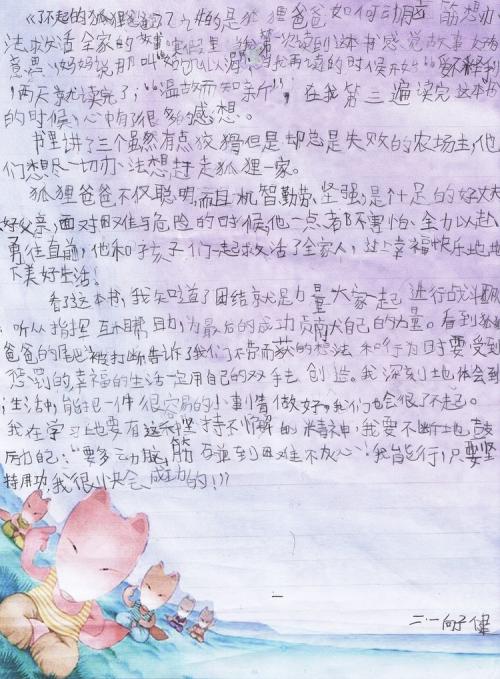 《了不起的狐狸爸爸》是 狐狸爸爸 如何动脑筋想办
法求活全家的故事。寒假里 我第一次读到这本书感觉故事
意思，妈妈说那叫 我再读的时候开始“爱不释手
，两天就读完了；“温故而知新”，在我第三遍读完这本书
的时候，心中有了很多的感想。
书里讲了三个虽然有点狡猾但是却总是失败的农场主，他
们想尽一切办法想赶走狐狸一家。
狐狸爸爸不仅聪明，而且机智勤劳、坚强，是个十足的好丈夫
好父亲，面对困难与危险的时候，他一点都不害怕、全力以赴、
勇往直前，他和孩子们一起求活了全家人，过上幸福快乐地
下美好生活！
看了这本书，我知道了团结就是力量大家一起 进行战斗
，听从指挥 互相帮助，为最后的成功贡献自己的力量。看到狐狸
爸爸的尾巴被打断告诉了我们不劳而获的想法 和行为时要受到
惩罚的幸福的生活一定用自己的双手去 创造。我深刻地体会到
；生活中，能把一件很容易的小事情做好，我们也会很了不起。
我在学习上也要有这种坚持不懈的精神，我要不断地鼓
励力自己：“要多动脑筋 碰到困难不灰心，我能行，只要坚
持用功，我很快会成功的！”
二·一 向子健